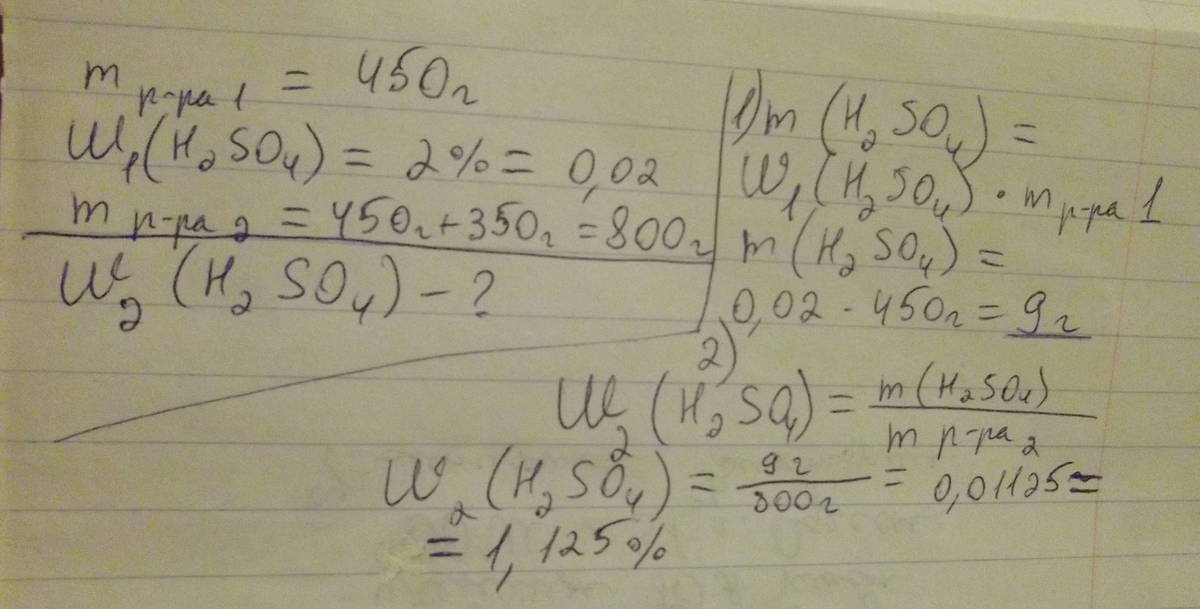 m р-ра 1 = 450г
W₁(H₂SO₄) = 2% = 0,02
m р-ра 2 = 450г+350г =800г
W₂ (H₂SO₄) – ?
1) m (H₂SO₄) =
W₁(H₂SO₄) · m р-ра 1
m (H₂SO₄) =
0,02 · 450г = 9г
2)
W₂ (H₂SO₄) = m (H₂SO₄) / m р-ра 2
W₂ (H₂SO₄) = 9г / 800г = 0,01125 =
= 1,125%